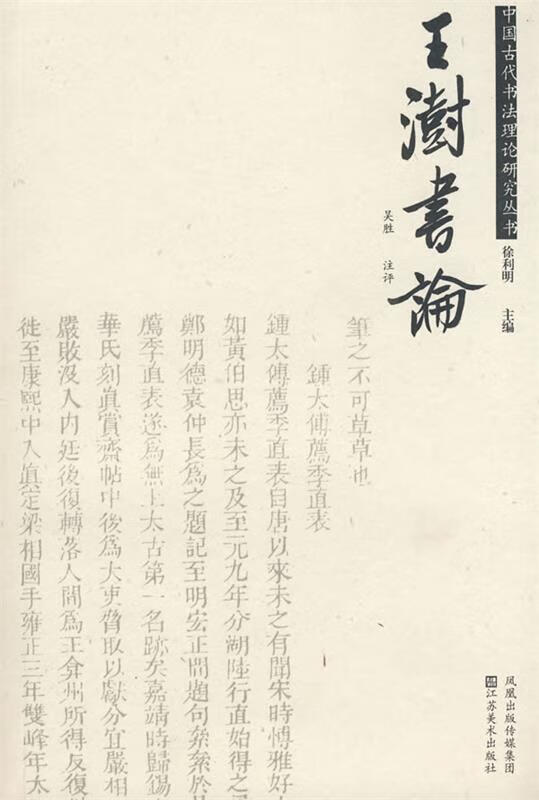 中国古代书法理论研究丛书
徐利明 主编
王澍書論
吴胜 注评
筆之不可草草也
鍾太傅薦季直表
鍾太傅薦季直表自唐以來未之有聞宋時博雅好
如黃伯思亦未之及至元九年分湖陸行直始得之
鄭明德袁仲長為之題記至明宏正間題句纍纍於
薦季直表遂為無上太古第一名跡矣嘉靖時歸錫
華氏刻真賞齋帖中後為大吏脅取以獻分宜嚴相
嚴敗沒入內廷後復轉落人間為王弇州所得反復
徙至康熙中入真定梁相國手雍正三年雙峰年太
凤凰出版传媒集团
江苏美术出版社